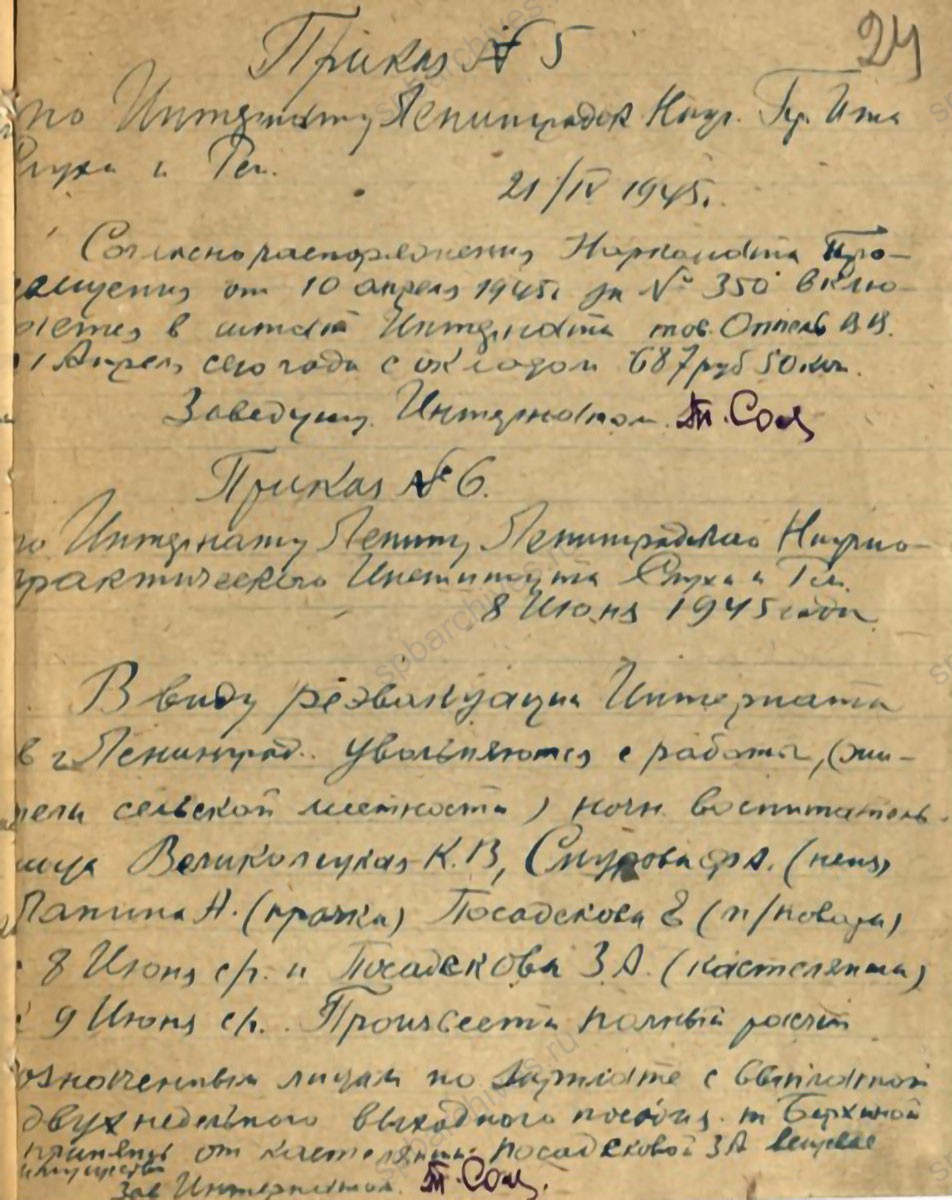 24
Приказ № 5
по Интернату Ленинградск. Научн. Пр. И-та
Слуха и Речи.
21/IV 1945г.
Согласно распоряжения Наркомата Про-
вещения от 10 апреля 1945г за № 350 вклю-
чается в штат Интерната тов. Оппель В.В.
с 1 Апреля сего года с окладом 687 руб 50 коп.
Заведующ. Интернатом.
Приказ № 6.
по Интернату Ленинградского Научно-
практического Института Слуха и Речи
8 Июня 1945 года
Ввиду реэвакуации Интерната
в г. Ленинград. увольняются с работы, (жи-
тели сельской местности) ночн. воспитатель-
ница Великолецкая К.В, Смурова А. (няня)
Лапина А. (прачка) Посадскова Е (п/повара)
с 8 Июня с/г. и Посадскова З.А. (кастелянша)
с 9 Июня с/г. Произвести полный расчёт
означенным лицам по зарплате с выплатой
двухнедельного выходного пособия. т
принять от кастелянши Посадсковой З.А вещевое
имущество
Зав Интернатом.
spbarchives.ru